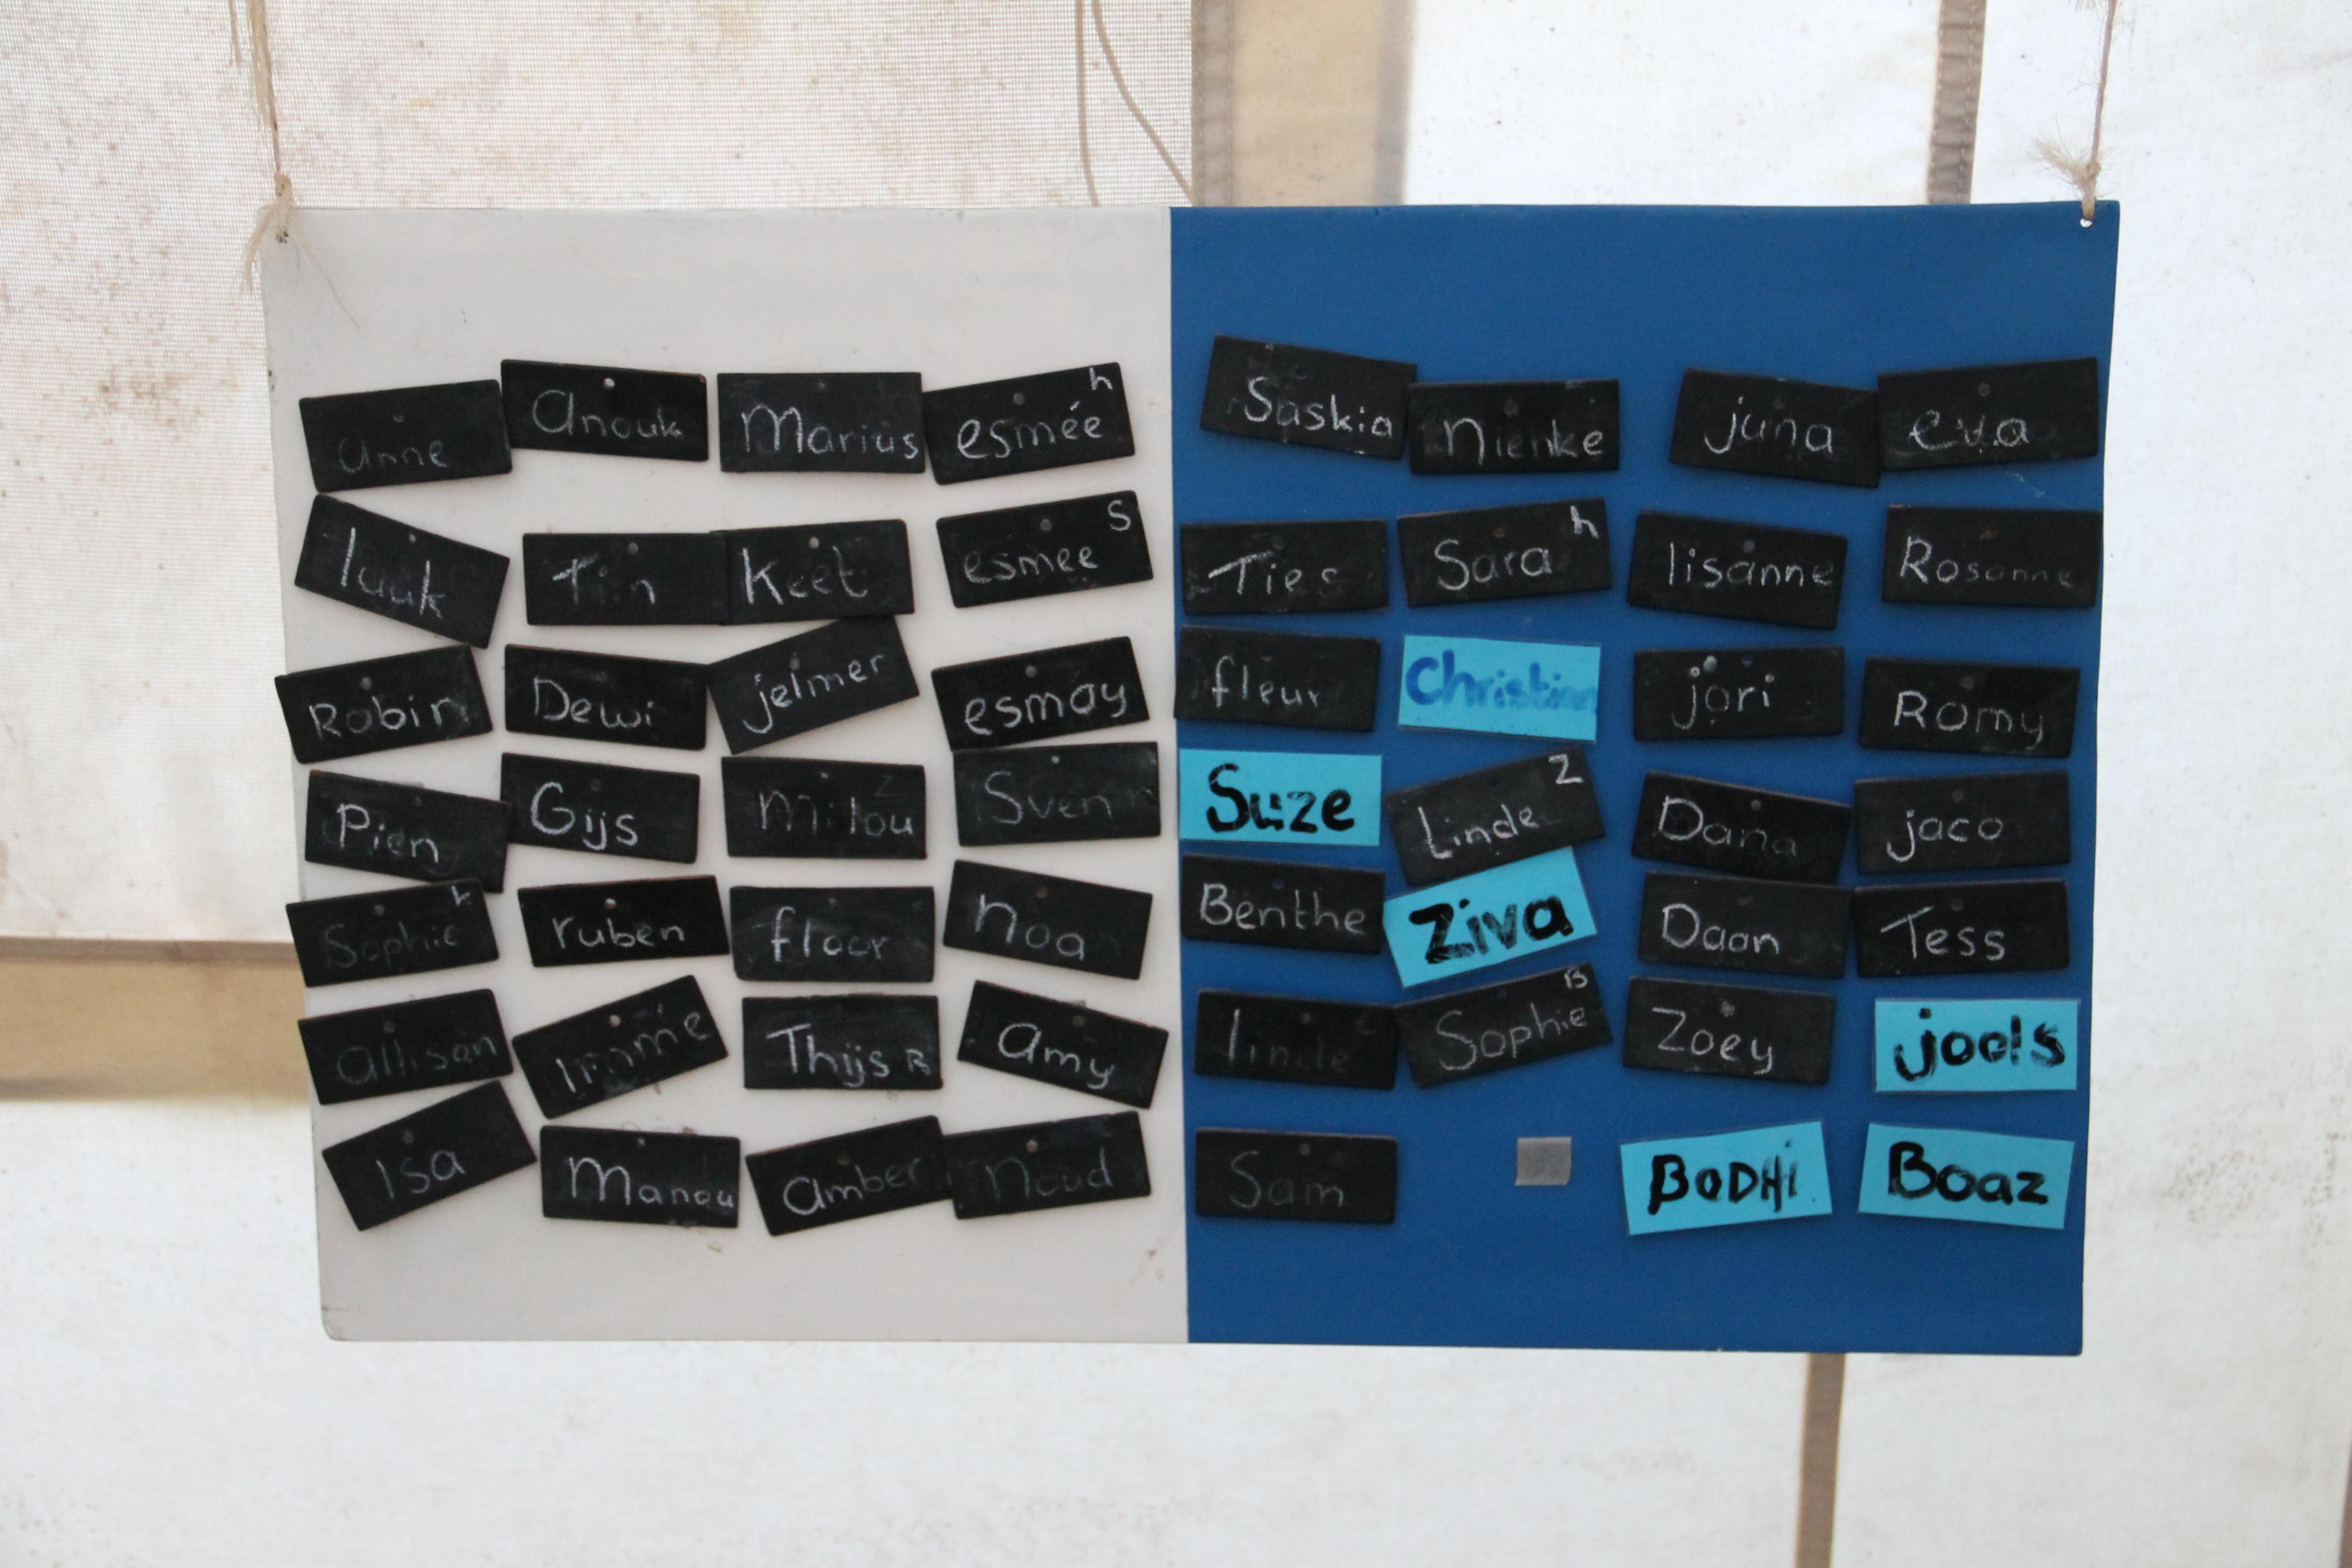 anne anouk Marius esmée h
luuk Tin Keet esmee s
Robin Dewi jelmer esmay
Pien Gijs Milou Z Sven
Sophie ruben floor noa
allison Imme Thijs R amy
Isa Manou amber Noud
Saskia Nienke juna eva
Ties Sara h lisanne Rosanne
fleur Christian jori Romy
Suze Linde Z Dana jaco
Benthe Ziva Daan Tess
linde Sophie B Zoey jools
Sam BODHi Boaz